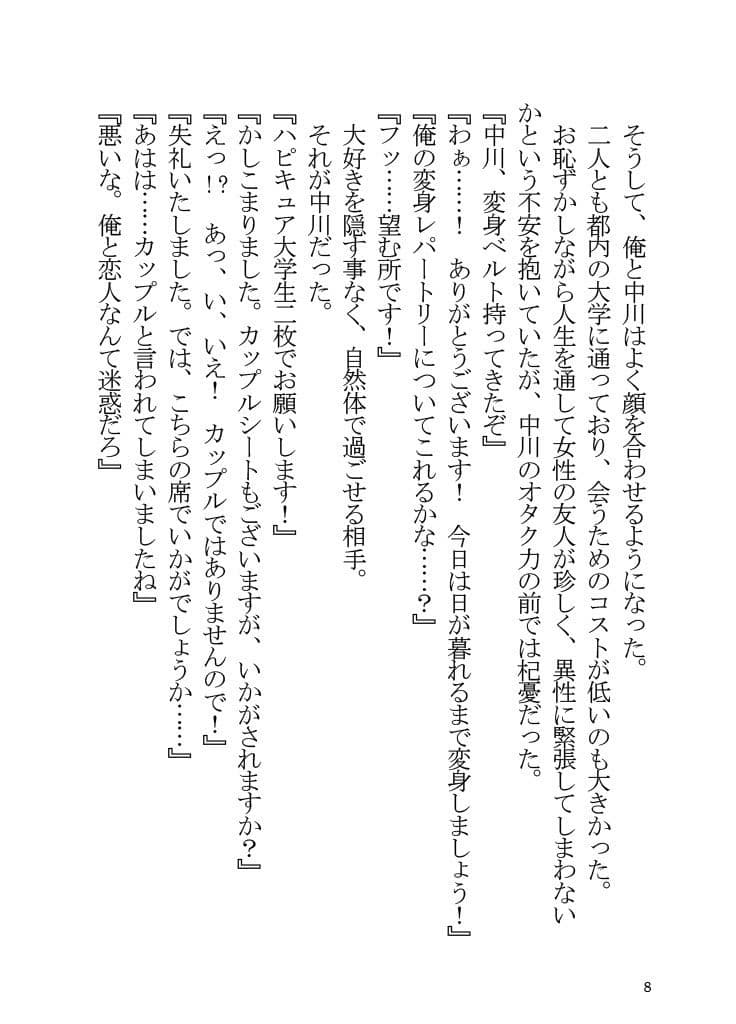 そうして、俺と中川はよく顔を合わせるようになった。
二人とも都内の大学に通っており、会うためのコストが低いのも大きかった。
お恥ずかしながら人生を通して女性の友人が珍しく、異性に緊張してしまわない
かという不安を抱いていたが、中川のオタク力の前では杞憂だった。
『中川、変身ベルト持ってきたぞ』
『わぁ……！　ありがとうございます！　今日は日が暮れるまで変身しましょう！』
『俺の変身レパートリーについてこれるかな……？』
『フッ……望む所です！』
大好きを隠す事なく、自然体で過ごせる相手。
それが中川だった。
『ハピキュア大学生二枚でお願いします！』
『かしこまりました。カップルシートもございますが、いかがされますか？』
『えっ!?　あっ、い、いえ！　カップルではありませんので！』
『失礼いたしました。では、こちらの席でいかがでしょうか……』
『あはは……カップルと言われてしまいましたね』
『悪いな。俺と恋人なんて迷惑だろ』
8